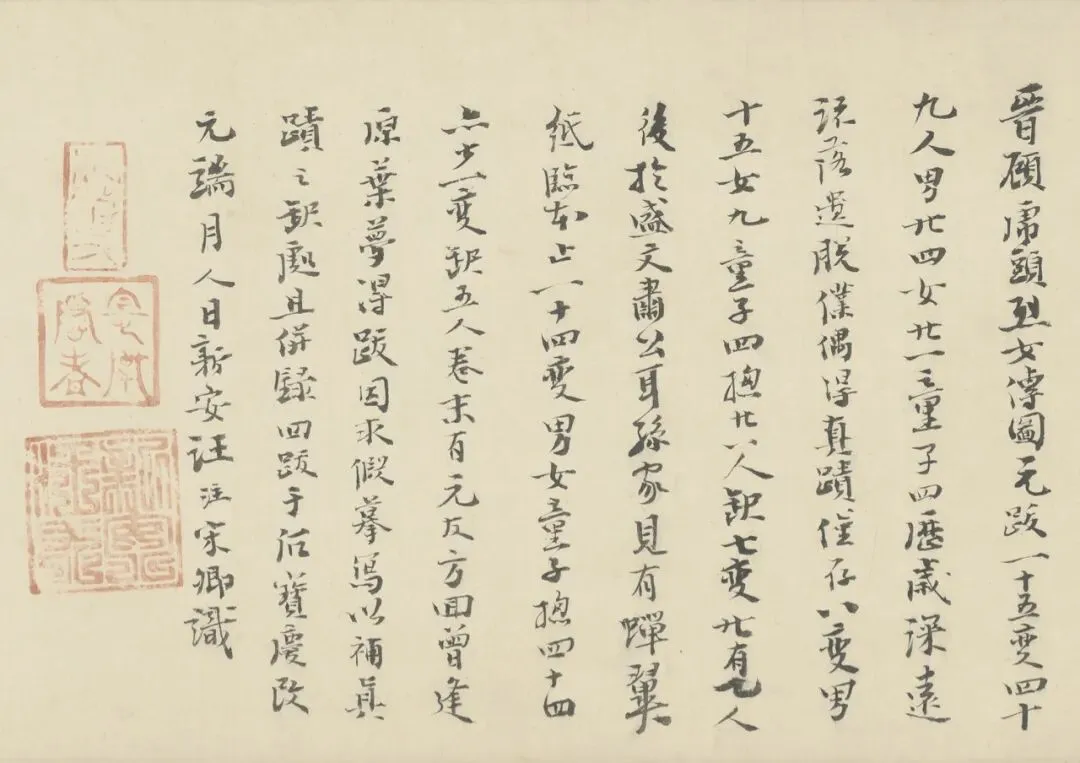 晉顧虎頭烈女傳圖元跋一十五變四十
九人男廿四女廿一童子四歷歲深遠
誤落遺脫僕偶得真蹟僅存八變男
十五女九童子四揔廿八人缺七變廿有一人
後於盛文肅公耳孫家見有蟬翼
紙臨本止一十四變男女童子揔四十四
亦少一變缺五人卷末有元友方回曾逢
原葉夢得跋因求假摹寫以補真
蹟之缺處且併錄四跋于后寶慶改
元端月人日新安汪注宋卿識